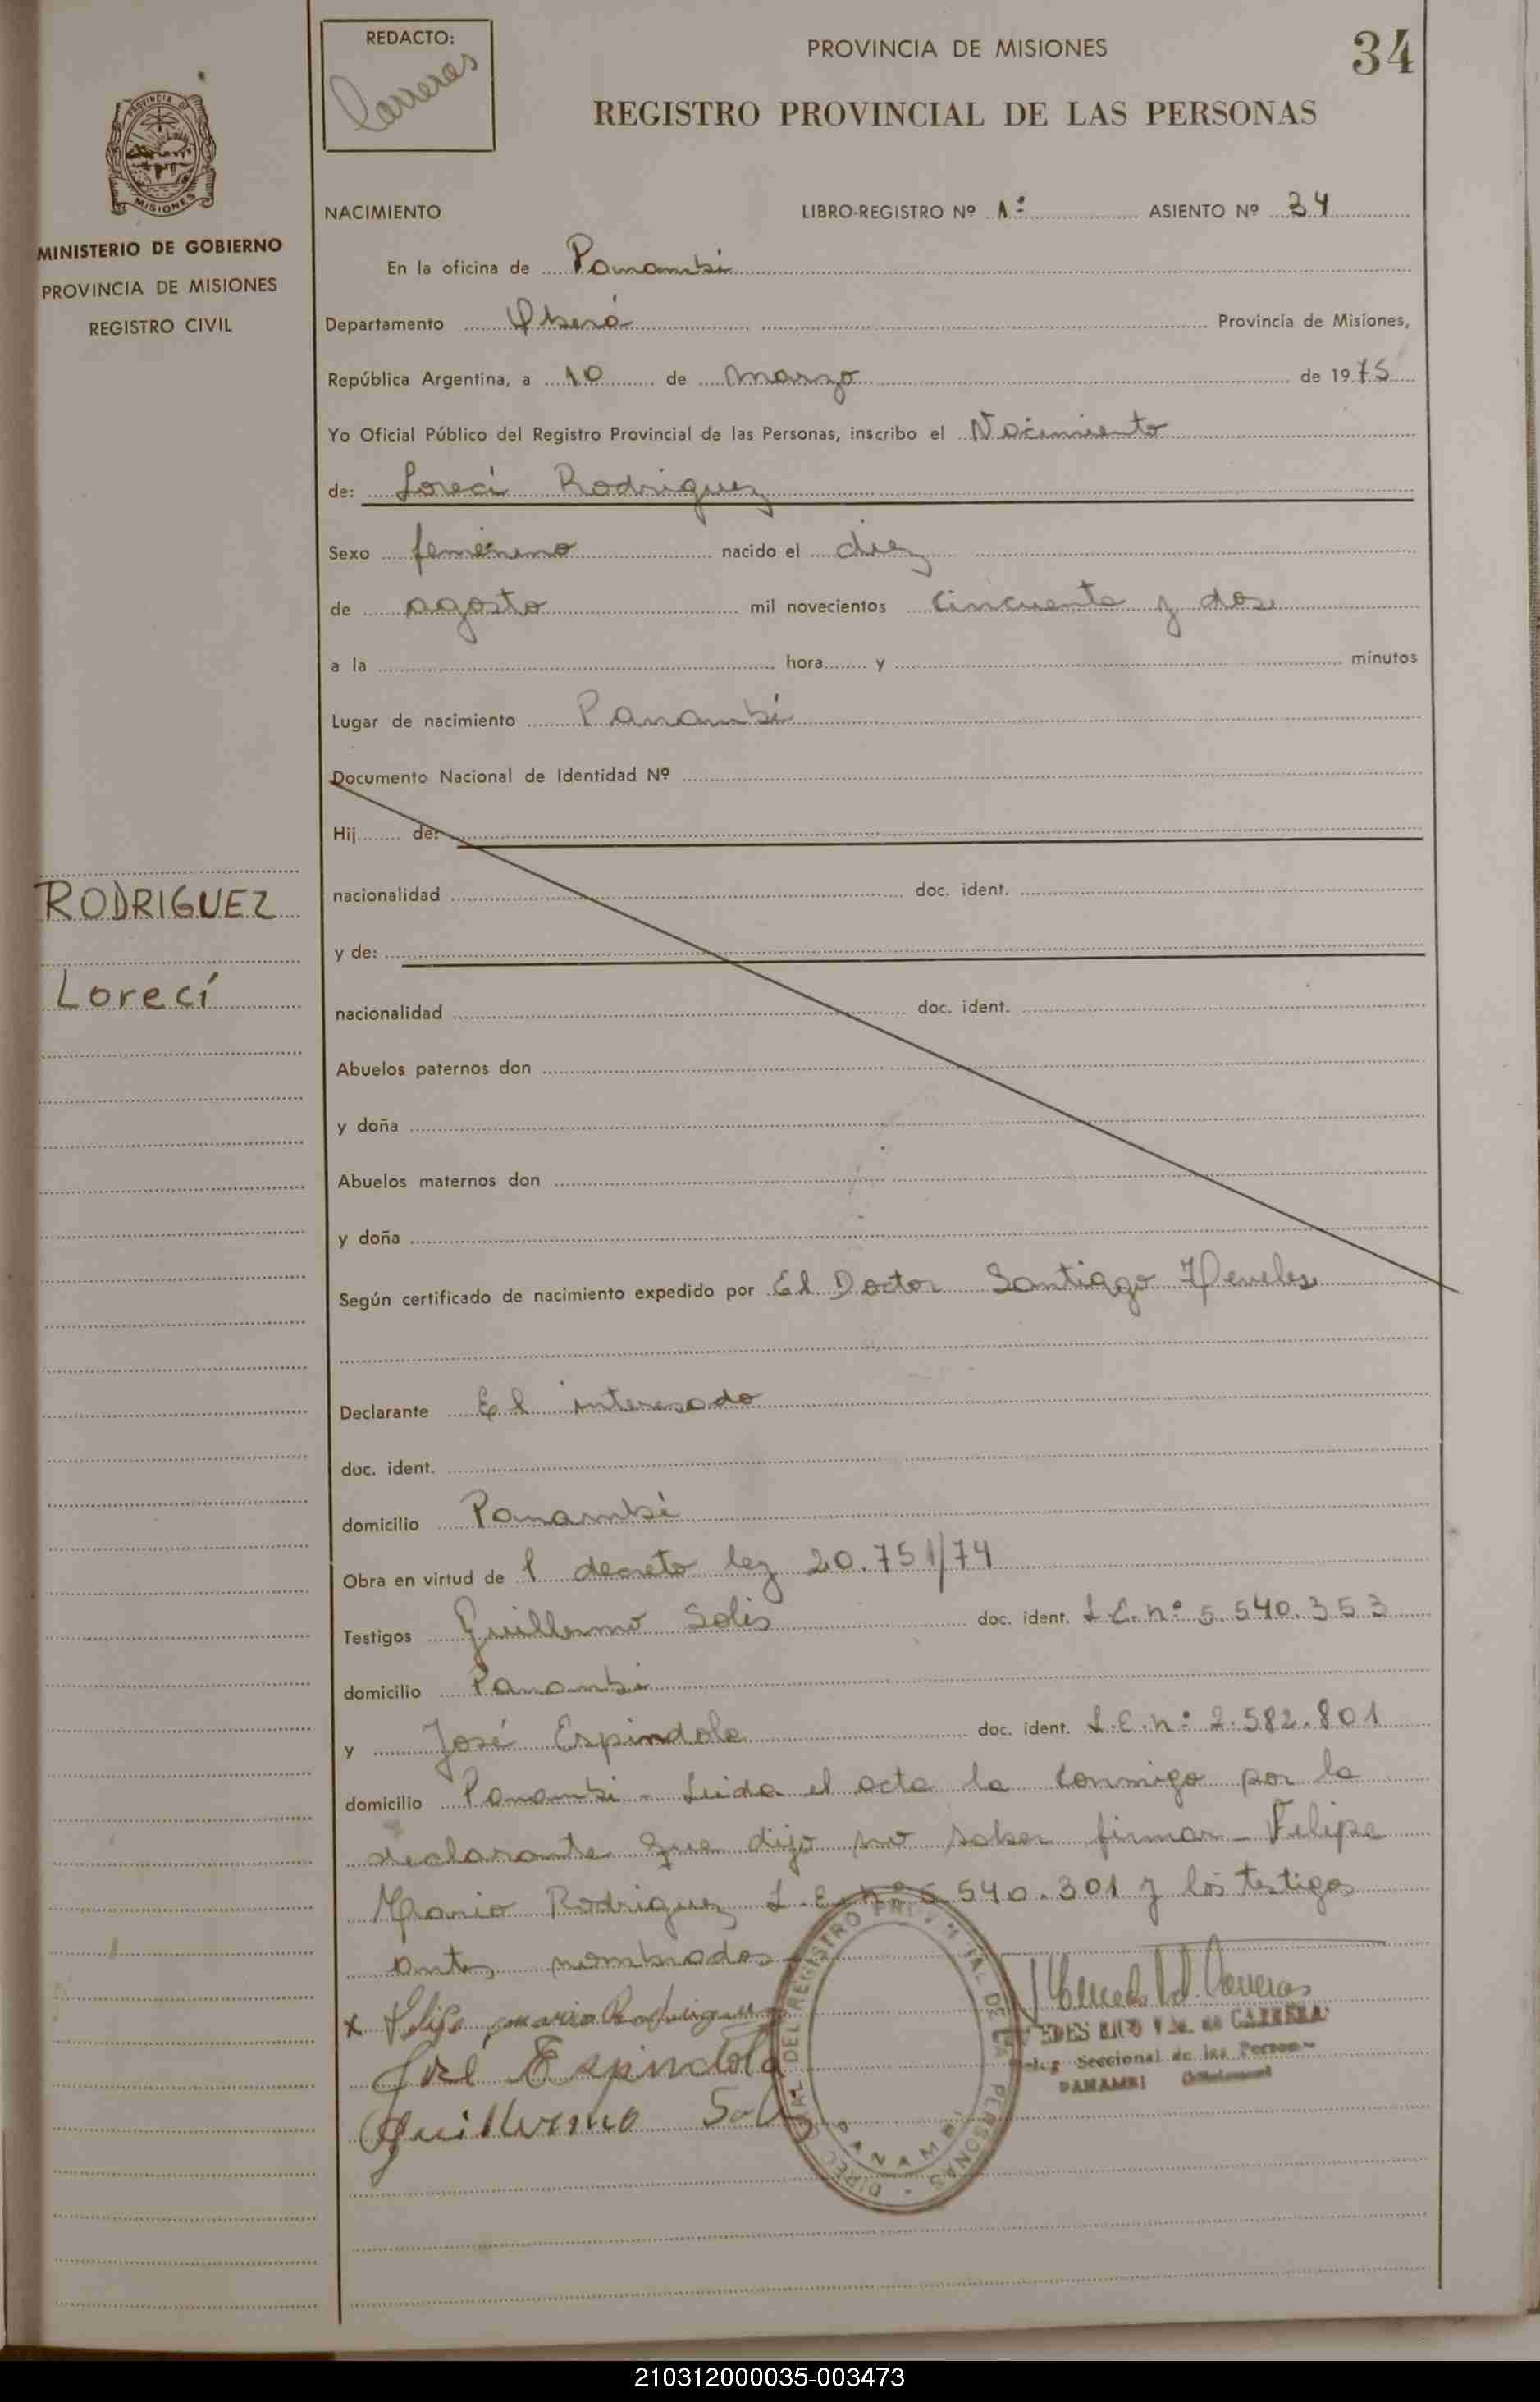 REDACTO:
Carreras
PROVINCIA DE MISIONES
34
REGISTRO PROVINCIAL DE LAS PERSONAS
PROVINCIA DE
MISIONES
MINISTERIO DE GOBIERNO
PROVINCIA DE MISIONES
REGISTRO CIVIL
NACIMIENTO LIBRO-REGISTRO Nº 1º ASIENTO Nº 34
En la oficina de Panambi
Departamento Oberá Provincia de Misiones,
República Argentina, a 10 de marzo de 1975
Yo Oficial Público del Registro Provincial de las Personas, inscribo el Nacimiento
de: Loreci Rodriguez
Sexo femenino nacido el diez
de agosto mil novecientos cincuenta y dos
a la hora y minutos
Lugar de nacimiento Panambi
Documento Nacional de Identidad Nº
Hij de:
RODRIGUEZ
nacionalidad doc. ident.
y de:
Lorecí
nacionalidad doc. ident.
Abuelos paternos don
y doña
Abuelos maternos don
y doña
Según certificado de nacimiento expedido por El Doctor Santiago
Declarante El interesado
doc. ident.
domicilio Panambi
Obra en virtud de l decreto ley 20.751/74
Testigos Guillermo Solis doc. ident. L.E. nº 5.540.353
domicilio Panambi
y José Espindola doc. ident. L.E. nº 2.582.801
domicilio Panambi - Leida el acta la conmigo por la
declarante que dijo no saber firmar - Felipe
Mario Rodriguez L.E. nº 5.540.301 y los testigos
antes nombrados
x Felipe mario Rodriguez
José Espindola
Guillermo Sol
DE CARRERA
Seccional de las Person
PANAMBI
DIREC DEL REGISTRO DE LAS PERSONAS
PANAMBI
210312000035-003473